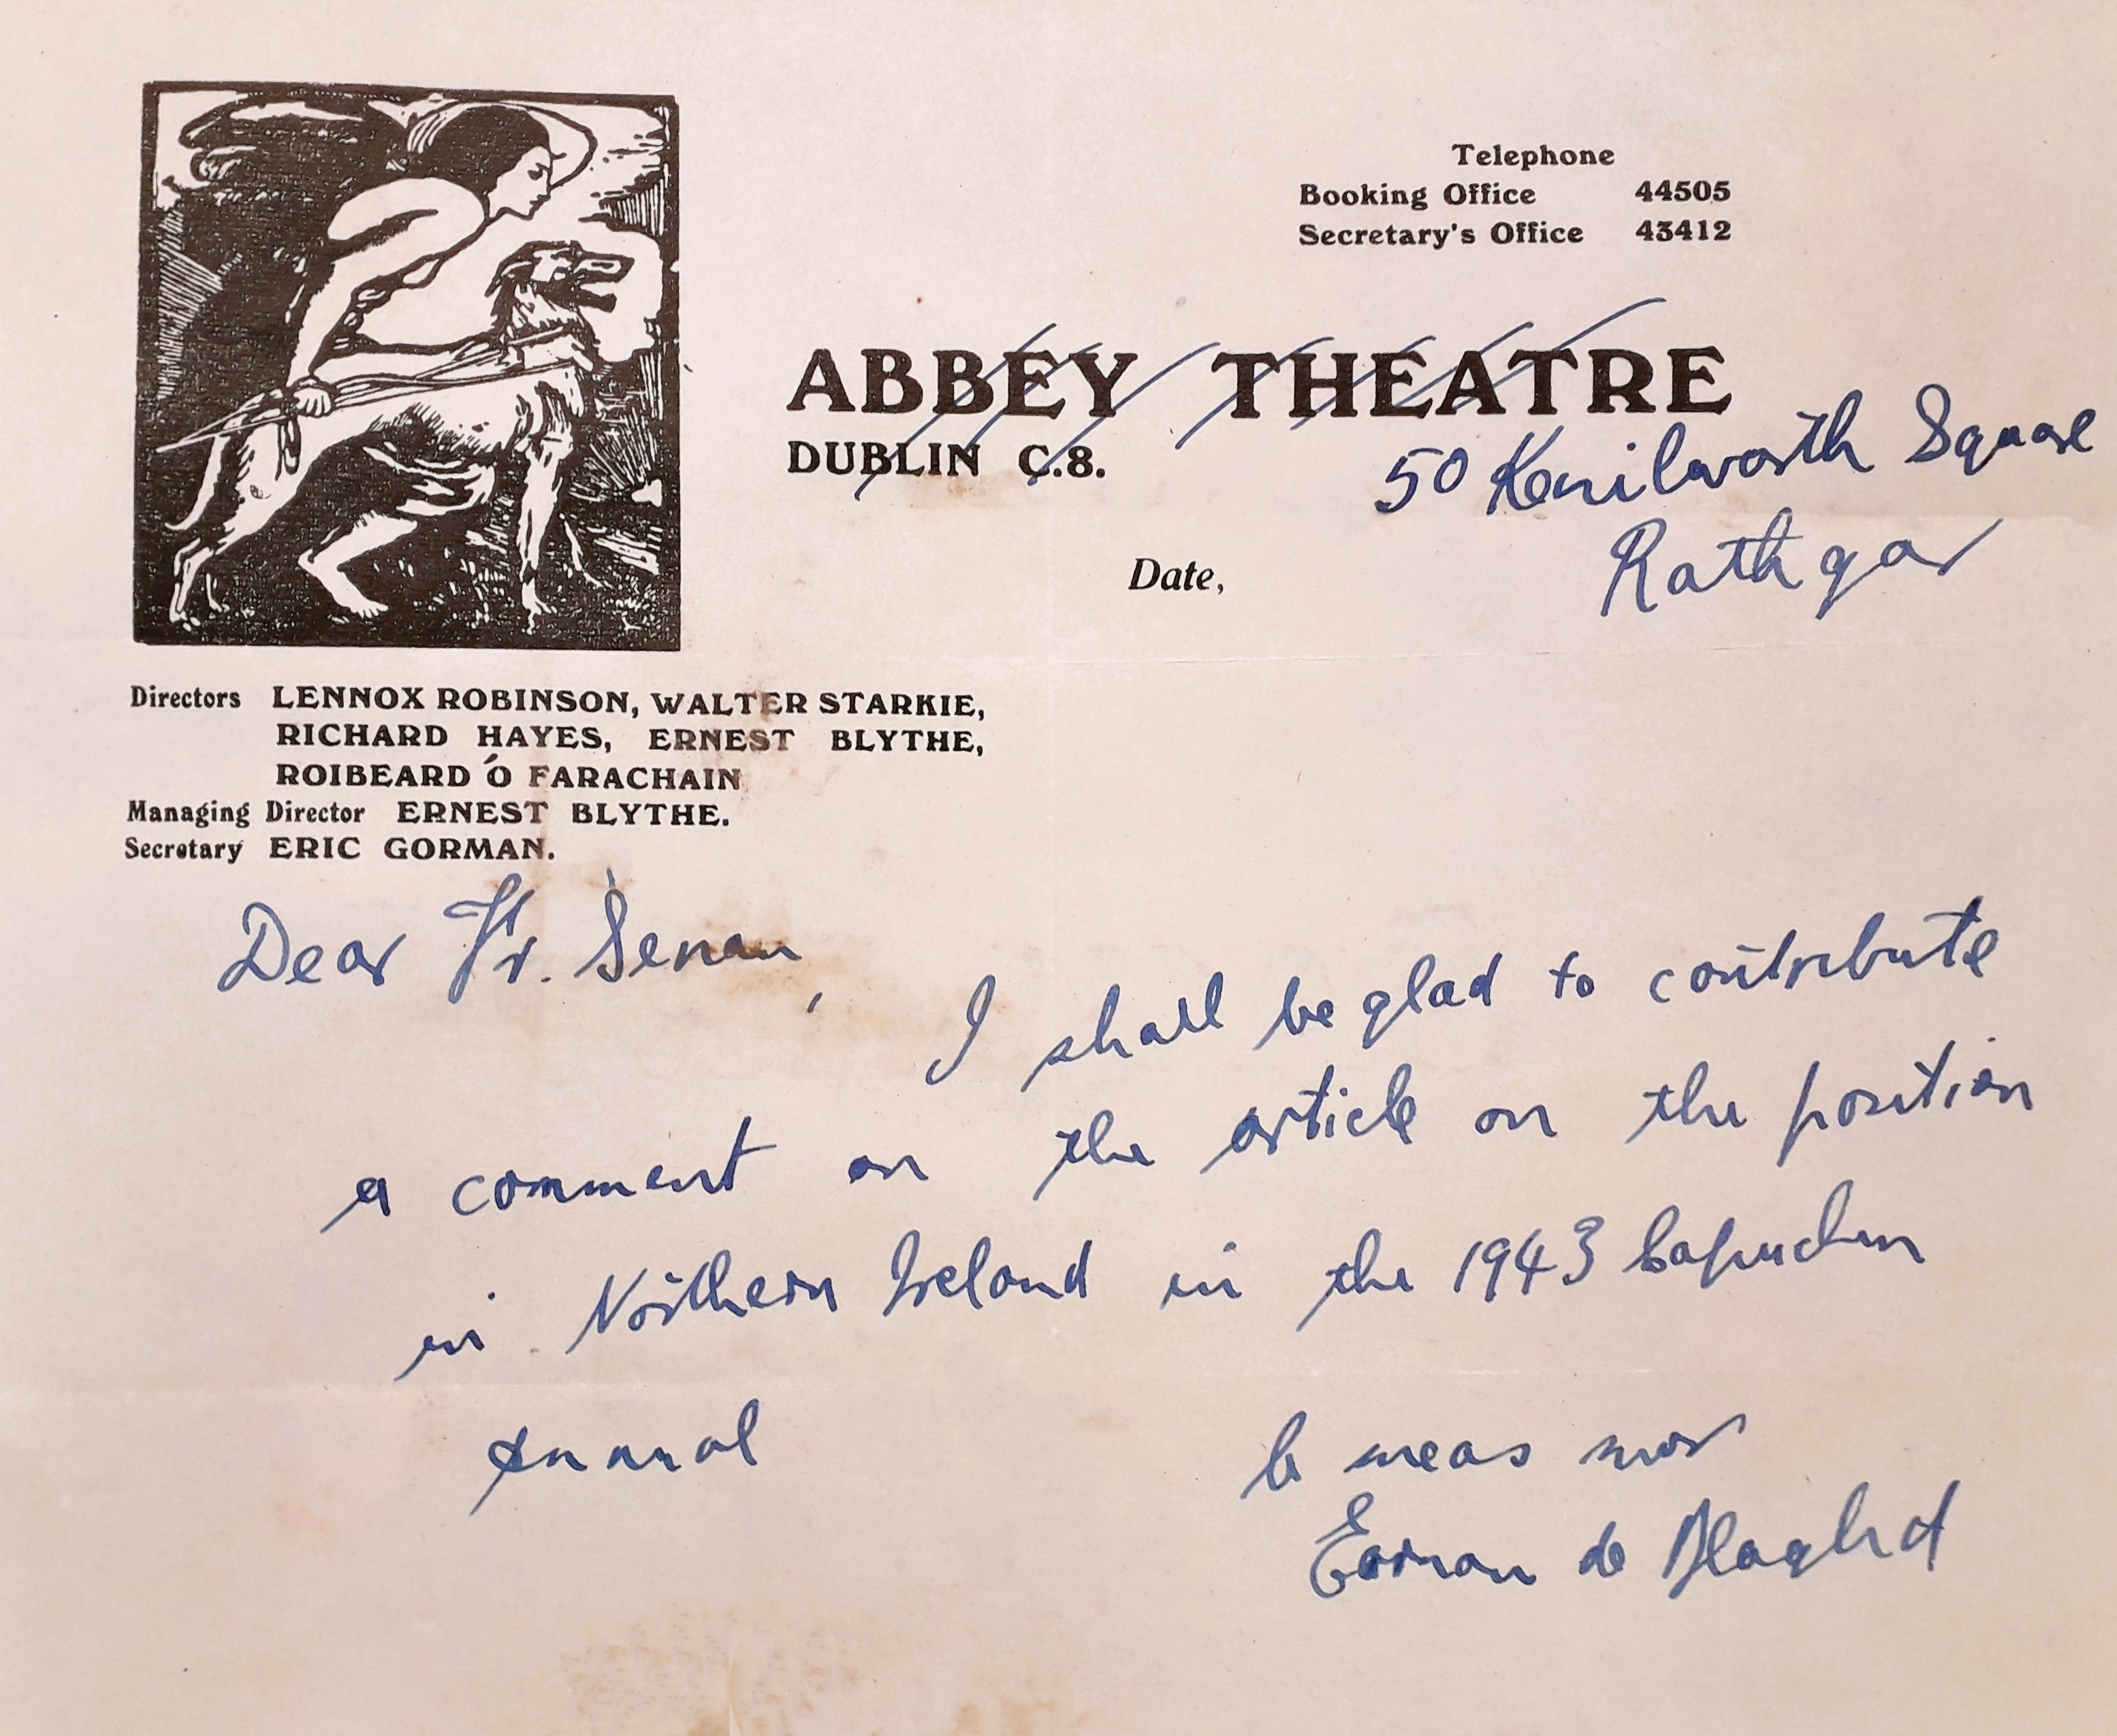 Telephone
Booking Office 44505
Secretary's Office 43412
ABBEY THEATRE
DUBLIN C.8.
50 Kenilworth Square
Rathgar
Date,
Directors LENNOX ROBINSON, WALTER STARKIE,
RICHARD HAYES, ERNEST BLYTHE,
ROIBEARD Ó FARACHAIN
Managing Director ERNEST BLYTHE.
Secretary ERIC GORMAN.
Dear Fr. Senan,
I shall be glad to contribute
a comment on the article on the position
in Northern Ireland in the 1943 Capuchin
Annual
le meas mor
Earnan de Blaghd